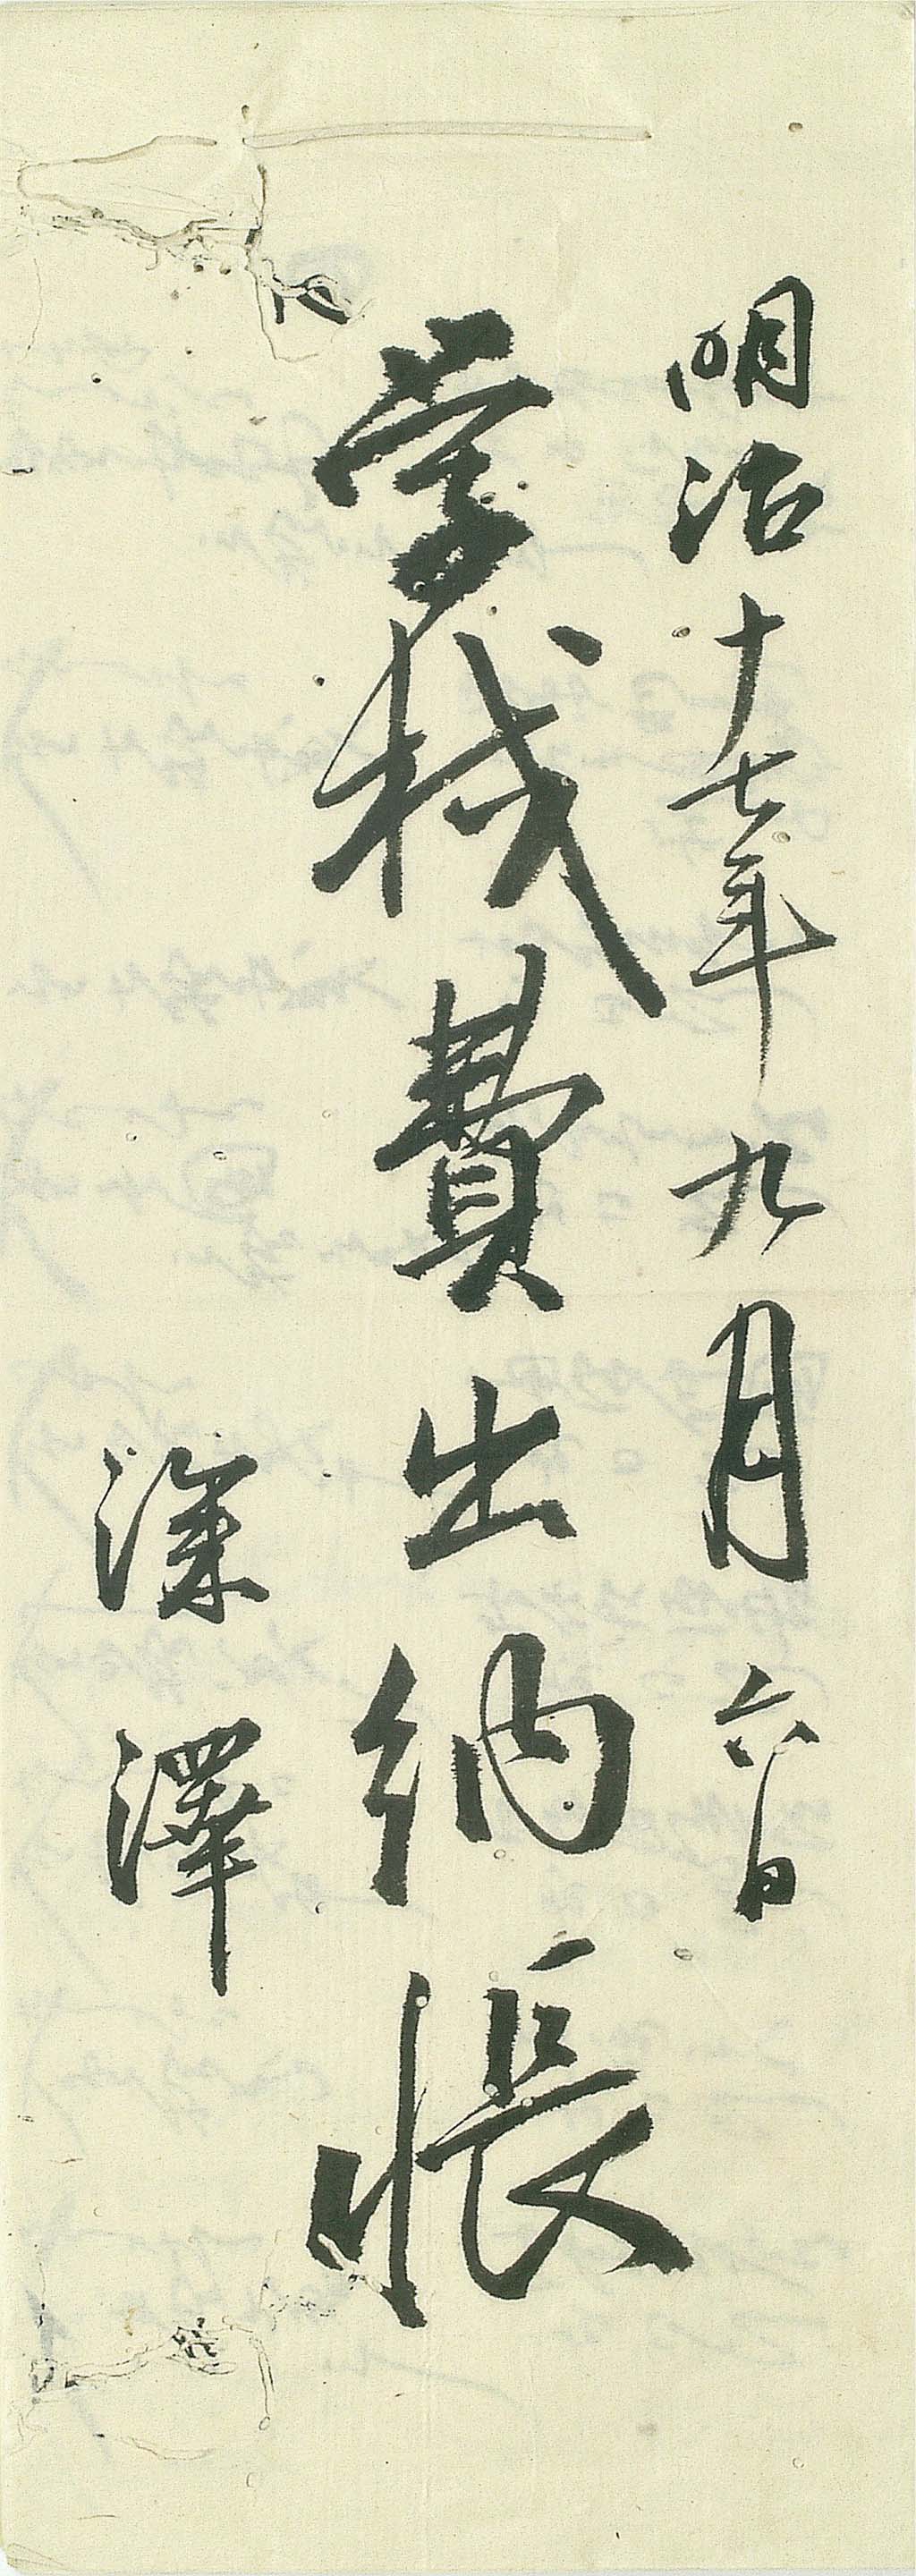 明治十七年九月六日
学械費出納帳
深澤